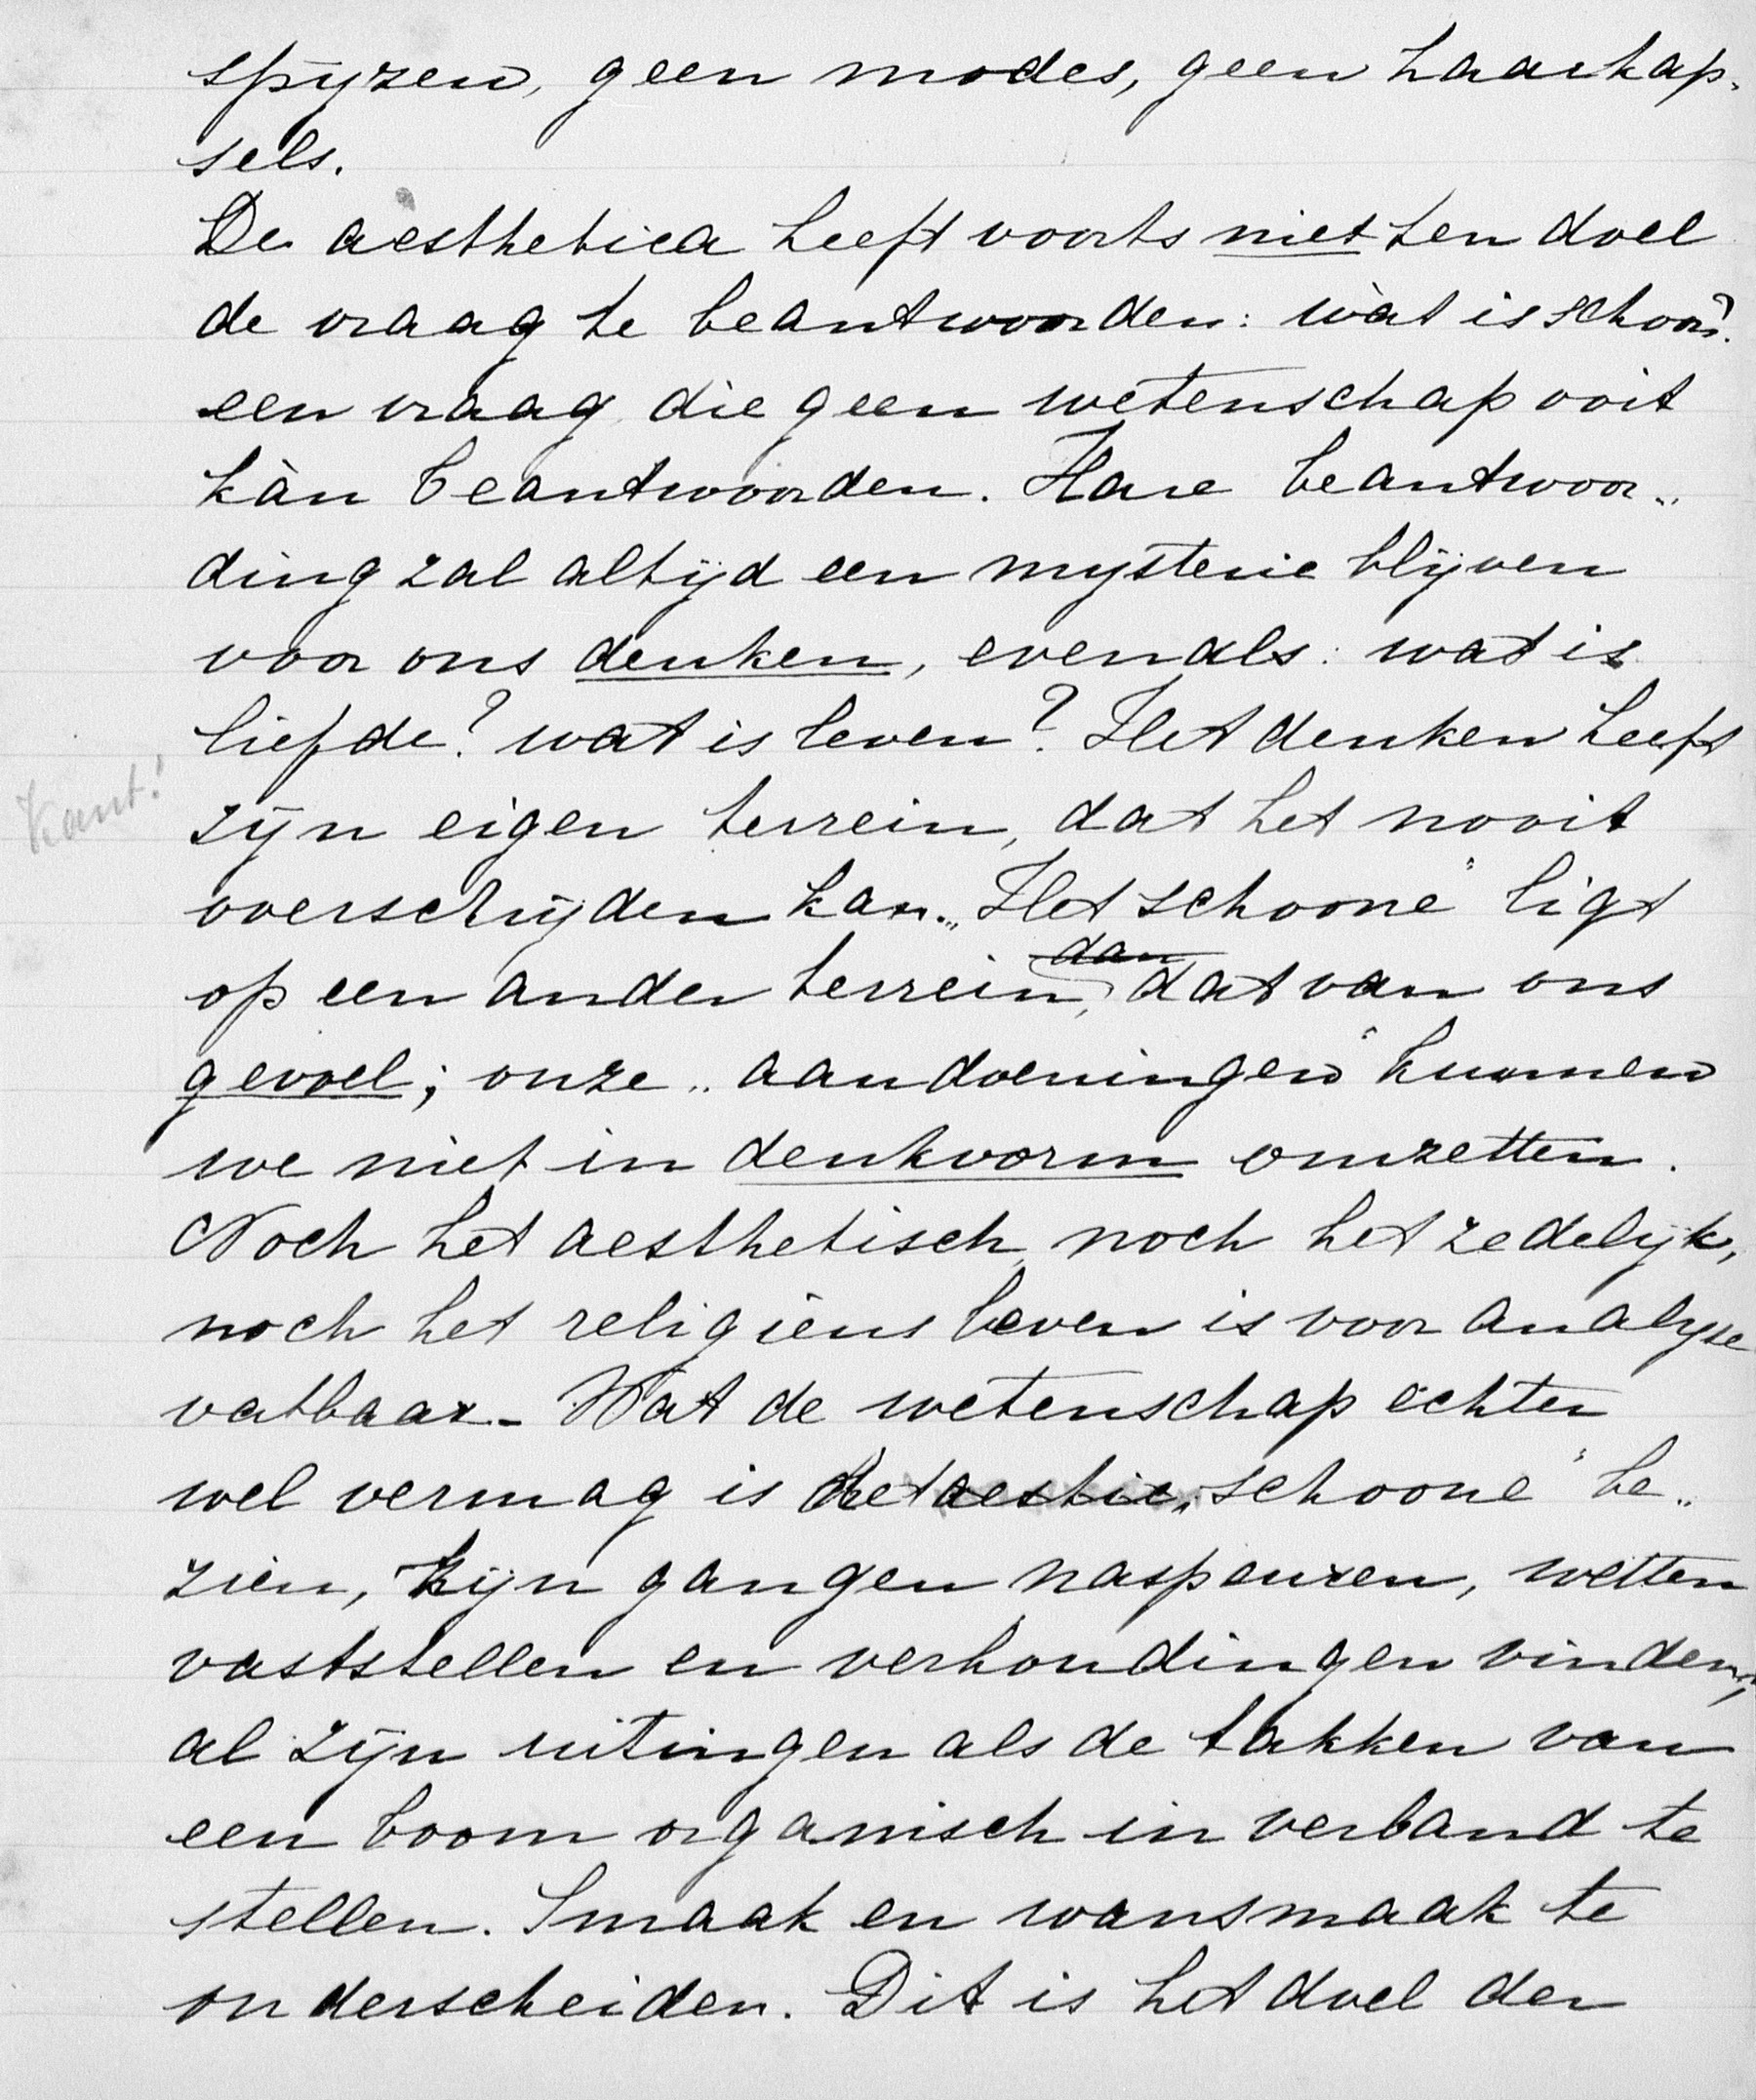 spijzen, geen modes, geen haarkap-
sels.
De aesthetica heeft voorts niet ten doel
de vraag te beantwoorden: wàt is schoon?
een vraag, die geen wetenschap ooit
kàn beantwoorden. Hare beantwoor„
ding zal altijd een mysterie blijven
voor ons denken, evenals: wat is
liefde? wat is leven? Het denken heeft
Kant!
zijn eigen terrein, dat het nooit
overschrijden kan. „Het schoone" ligt
dan
op een ander terrein, dat van ons
gevoel; onze „aandoeningen" kunnen
we niet in denkvorm omzetten.
Noch het aesthetisch, noch het zedelijk,
noch het religieus leven is voor analyse
vatbaar. Wat de wetenschap echter
wel vermag is het aesthe „schoone" be„
zien, zijn gangen naspeuren, wetten
vaststellen en verhoudingen vinden,
al zijn uitingen als de takken van
een boom organisch in verband te
stellen. Smaak en wansmaak te
onderscheiden. Dit is het doel der